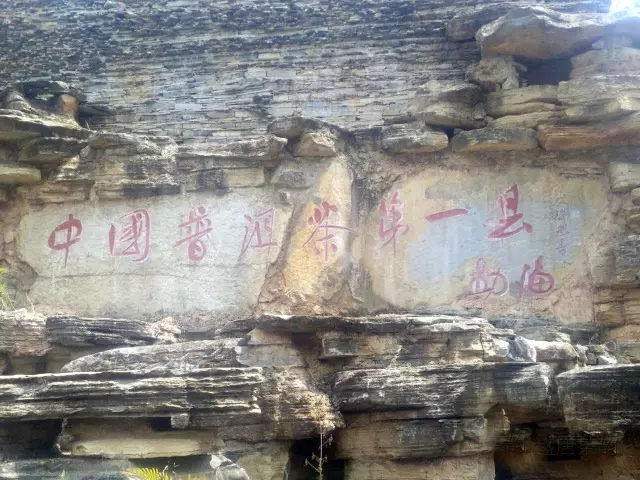 中国普洱茶第一县
勐海